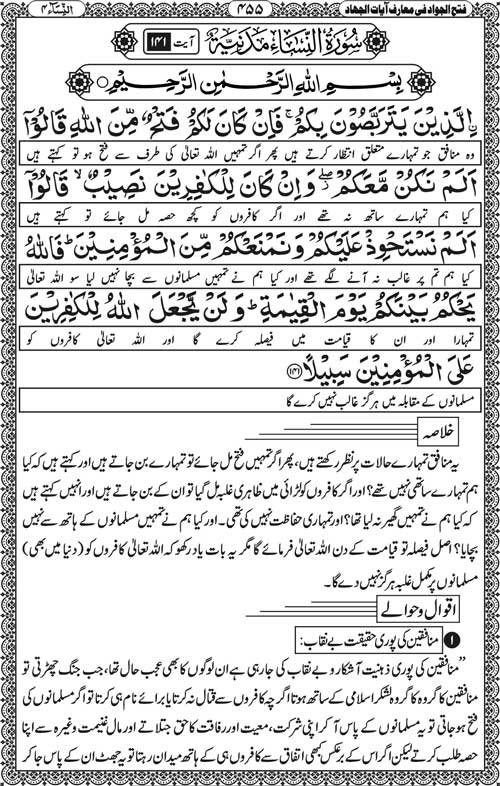 فتح الجواد فی معارف آیات الجہاد ۴۵۵ النساء ۴
سُورَةُ النِّسَاءِ مَدَنِيَّةٌ آیت ۱۴۱
بِسْمِ اللهِ الرَّحْمٰنِ الرَّحِيْمِ
الَّذِيْنَ يَتَرَبَّصُوْنَ بِكُمْ ۚ فَاِنْ كَانَ لَكُمْ فَتْحٌ مِّنَ اللهِ قَالُوْٓا
وہ منافق جو تمہارے متعلق انتظار کرتے ہیں پھر اگر تمہیں اللہ تعالیٰ کی طرف سے فتح ہو تو کہتے ہیں
اَلَمْ نَكُنْ مَّعَكُمْ ۖ وَاِنْ كَانَ لِلْكٰفِرِيْنَ نَصِيْبٌ ۙ قَالُوْٓا
کیا ہم تمہارے ساتھ نہ تھے اور اگر کافروں کو کچھ حصہ مل جائے تو کہتے ہیں
اَلَمْ نَسْتَحْوِذْ عَلَيْكُمْ وَنَمْنَعْكُمْ مِّنَ الْمُؤْمِنِيْنَ ؕ فَاللهُ
کیا ہم تم پر غالب نہ آنے لگے تھے اور کیا ہم نے تمہیں مسلمانوں سے بچا نہیں لیا سو اللہ تعالیٰ
يَحْكُمُ بَيْنَكُمْ يَوْمَ الْقِيٰمَةِ ؕ وَلَنْ يَّجْعَلَ اللهُ لِلْكٰفِرِيْنَ
تمہارا اور ان کا قیامت میں فیصلہ کرے گا اور اللہ تعالیٰ کافروں کو
عَلَى الْمُؤْمِنِيْنَ سَبِيْلًا ﴿۱۴۱﴾
مسلمانوں کے مقابلہ میں ہرگز غالب نہیں کرے گا
خلاصہ
یہ منافق تمہارے حالات پر نظر رکھتے ہیں، پھر اگر تمہیں فتح مل جائے تو تمہارے بن جاتے ہیں اور کہتے ہیں کہ کیا
ہم تمہارے ساتھی نہیں تھے؟ اور اگر کافروں کو لڑائی میں ظاہری غلبہ مل گیا تو ان کے بن جاتے ہیں اور انہیں کہتے ہیں
کہ کیا ہم نے تمہیں گھیر نہ لیا تھا؟ اور تمہاری حفاظت نہیں کی تھی۔ اور کیا ہم نے تمہیں مسلمانوں کے ہاتھ سے نہیں
بچایا؟ اصل فیصلہ تو قیامت کے دن اللہ تعالیٰ فرمائے گا مگر یہ بات یاد رکھو کہ اللہ تعالیٰ کافروں کو (دنیا میں بھی)
مسلمانوں پر مکمل غلبہ ہرگز نہیں دے گا۔
اقوال و حوالے
۱ منافقین کی پوری حقیقت بے نقاب:
”منافقین کی پوری ذہنیت آشکار و بے نقاب کی جارہی ہے ان لوگوں کا بھی عجب حال تھا، جب جنگ چھڑتی تو
منافقین کا گروہ کا گروہ لشکر اسلامی کے ساتھ ہوتا اگر چہ کافروں سے قتال نہ کرتا یا برائے نام ہی کرتا تو اگر مسلمانوں کی
فتح ہو جاتی تو یہ مسلمانوں کے پاس آ کر اپنی شرکت، معیت اور رفاقت کا حق جتلاتے اور مال غنیمت وغیرہ سے اپنا
حصہ طلب کرتے لیکن اگر اس کے برعکس کبھی اتفاق سے کافروں ہی کے ہاتھ میدان رہتا تو یہ جھٹ ان کے پاس جا کر